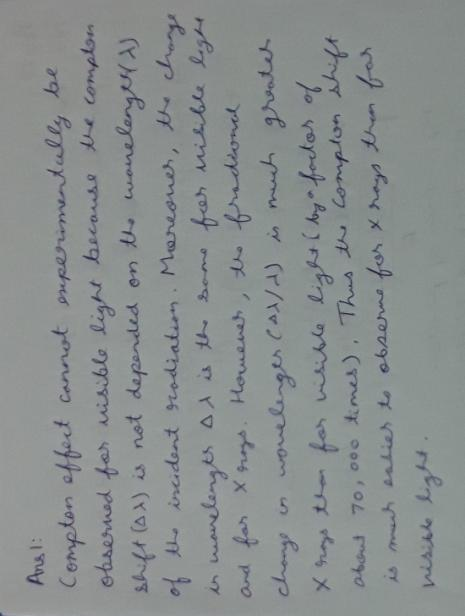 Ans1:
Compton effect cannot experimentally be
observed for visible light because the compton
shift (Δλ) is not depended on the wavelength(λ)
of the incident radiation. Moreover, the change
in wavelength Δλ is the same for visible light
and for X rays. However, the fractional
change in wavelength (Δλ/λ) is much greater
X rays than for visible light (by a factor of
about 70,000 times). Thus the Compton shift
is much easier to observe for X rays than for
visible light.